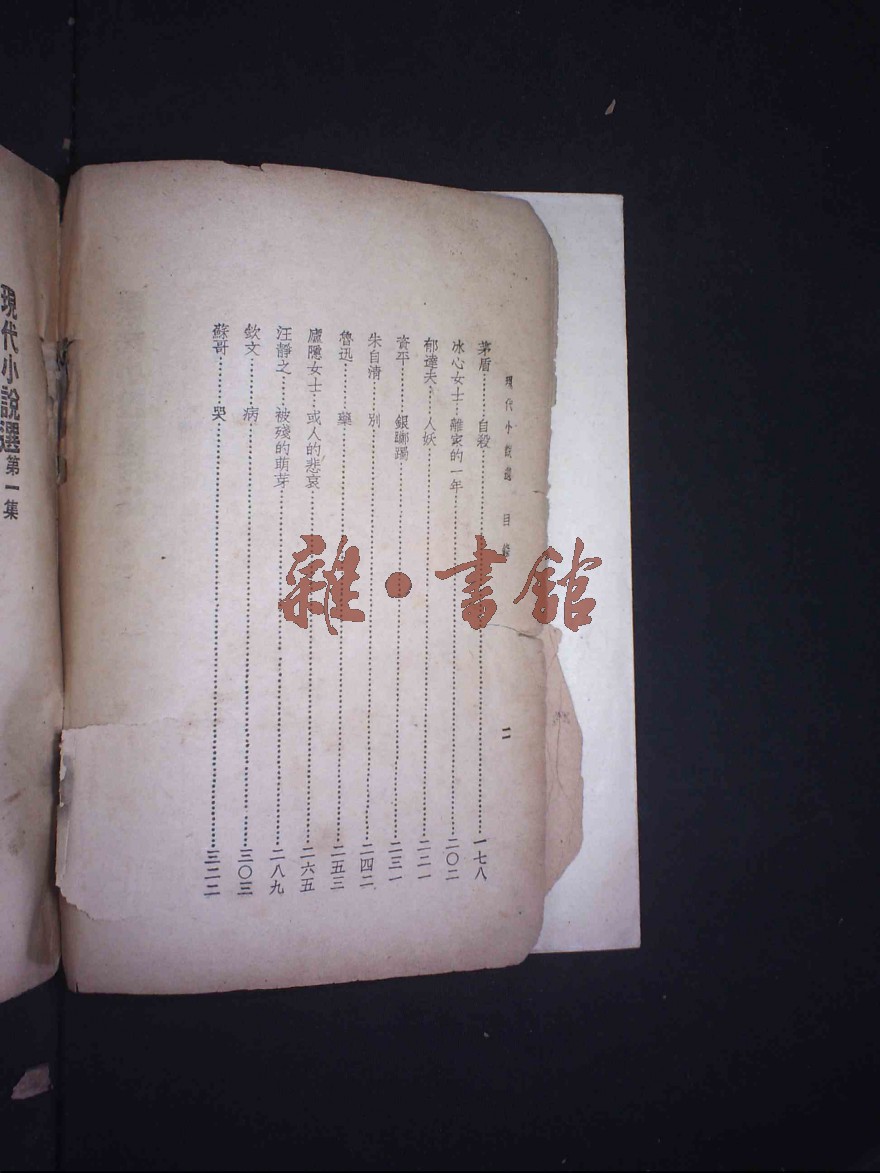 現代小說選 目錄
二
茅盾………自殺………一七八
冰心女士…離家的一年………二〇二
郁達夫……人妖………二二一
資平………銀躑躅………二三一
朱自清……別………二四二
魯迅………藥………二五三
廬隱女士…或人的悲哀………二六五
汪靜之……被殘的萌芽………二八九
欽文………病………三〇三
蘇哥………哭………三二二
現代小說選第一集
雜·書館